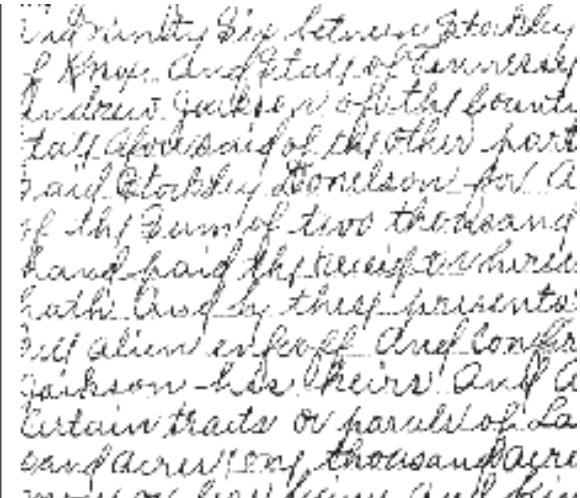 and ninety Six between Stockley
of Knox and State of Tennessee
Andrew Jackson of the Count
tate aforesaid of the other part
said Stockley Donelson for a
of the Sum of two thousand
hand paid the receipt where
hath And by these presents
sell alien enfeoff And Confir
Jackson his heirs And A
Certain tracts or parcels of La
sand acres one thousand acre